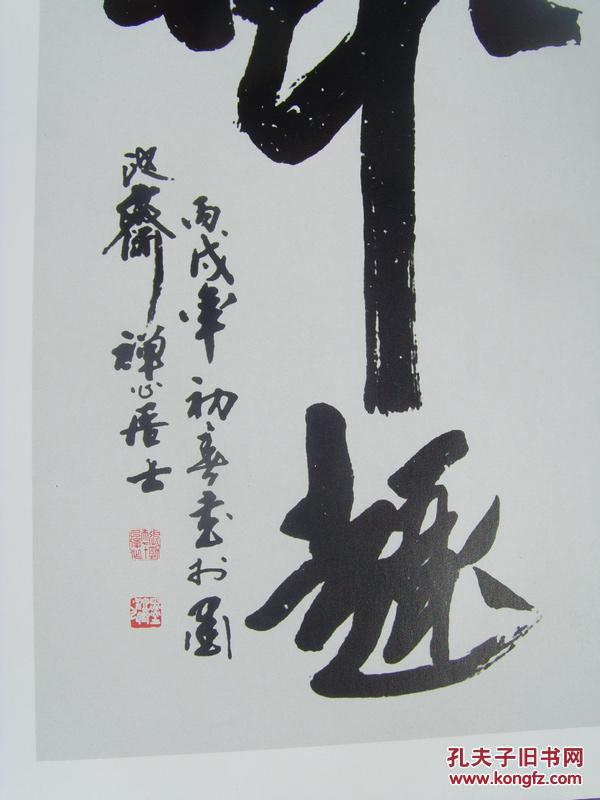 趣
丙戌年初春书於
齋禪心居士
孔夫子旧书网
www.kongfz.com